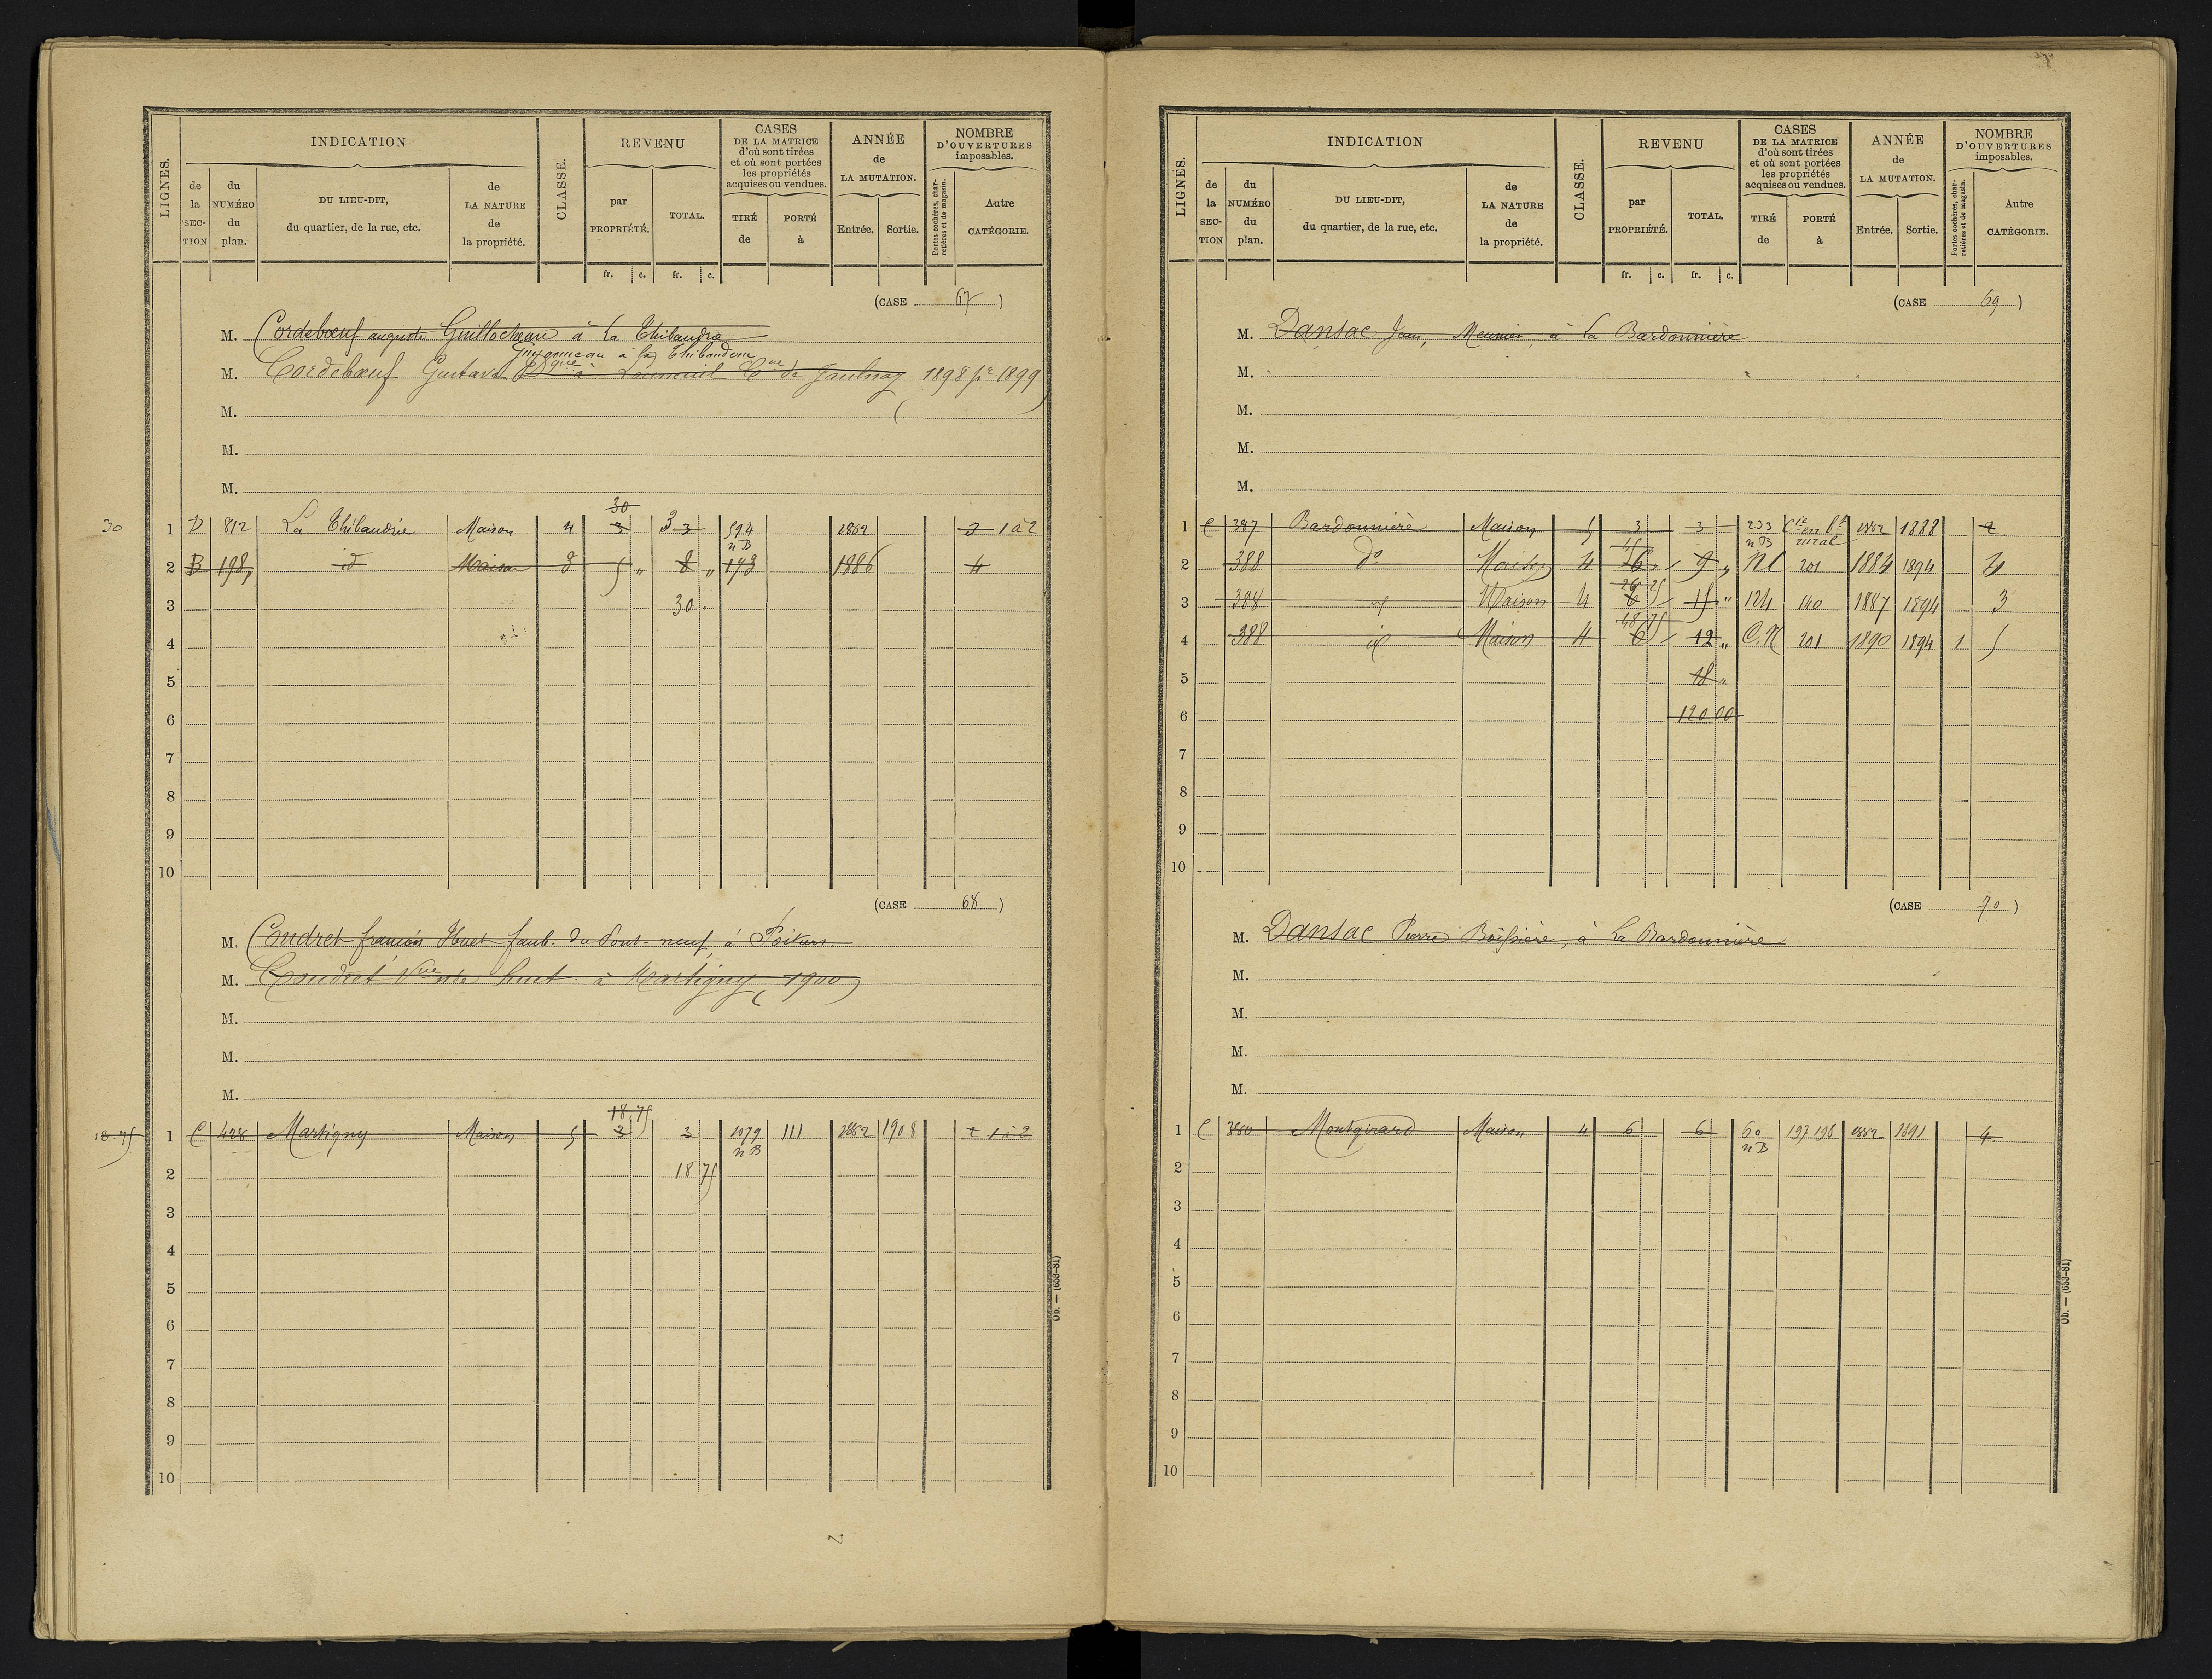 LIGNES.
INDICATION
de la SEC-TION
du NUMÉRO du plan.
DU LIEU-DIT, du quartier, de la rue, etc.
de LA NATURE de la propriété.
CLASSE.
REVENU
par PROPRIÉTÉ.
TOTAL.
fr. c. fr. c.
CASES DE LA MATRICE d'où sont tirées et où sont portées les propriétés acquises ou vendues.
TIRÉ de
PORTÉ à
ANNÉE de LA MUTATION.
Entrée. Sortie.
NOMBRE D'OUVERTURES imposables.
Portes cochères, charretières et de magasin.
Autre CATÉGORIE.
(CASE 67)
M. Cordebœuf auguste Guillocheau à La Thibaudrie
à la Thibauderie
M. Cordebœuf Gustave à de Jaulnay 1898 pr 1899
M.
M.
M.
30
30 1 D 812 La Thibaudrie Maison 4 3 3 3 594 1882 3 1 à 2
n B
2 B 198 id Maison 8 5 " 8 " 193 1886 4
3 30 "
4
5
6
7
8
9
10
(CASE 68)
M. Coudret françois Huet faub. du Pont-neuf, à Poitiers
M. Coudret Vve née huet à Martigny (1900)
M.
M.
M.
18.75
18.75 1 C 428 Martigny Maison 5 3 3 1079 111 1882 1908 2 1 à 2
n B
2 18 75
3
4
5
6
7
8
9
10
Ob. — (653-81)
LIGNES.
INDICATION
de la SEC-TION
du NUMÉRO du plan.
DU LIEU-DIT, du quartier, de la rue, etc.
de LA NATURE de la propriété.
CLASSE.
REVENU
par PROPRIÉTÉ.
TOTAL.
fr. c. fr. c.
CASES DE LA MATRICE d'où sont tirées et où sont portées les propriétés acquises ou vendues.
TIRÉ de
PORTÉ à
ANNÉE de LA MUTATION.
Entrée. Sortie.
NOMBRE D'OUVERTURES imposables.
Portes cochères, charretières et de magasin.
Autre CATÉGORIE.
(CASE 69)
M. Dansac Jean, Meunier, à La Bardonnière
M.
M.
M.
M.
1 C 387 Bardonnière Maison 5 3 3 233 en bt 1882 1888 2
n B rural
45
2 388 do Maison 4 6 9 " NC 201 1884 1894 4
26 25
3 388 id Maison 4 6 15 " 124 140 1887 1894 3
48 75
4 388 id Maison 4 6 12 " C.N 201 1890 1894 1 5
5 18 "
6 120 00
7
8
9
10
(CASE 70)
M. Dansac Pierre Boissière, à La Bardonnière
M.
M.
M.
M.
1 C 380 Montgirard Maison 4 6 6 60 197 198 1882 1891 4
n B
2
3
4
5
6
7
8
9
10
Ob. — (653-81)